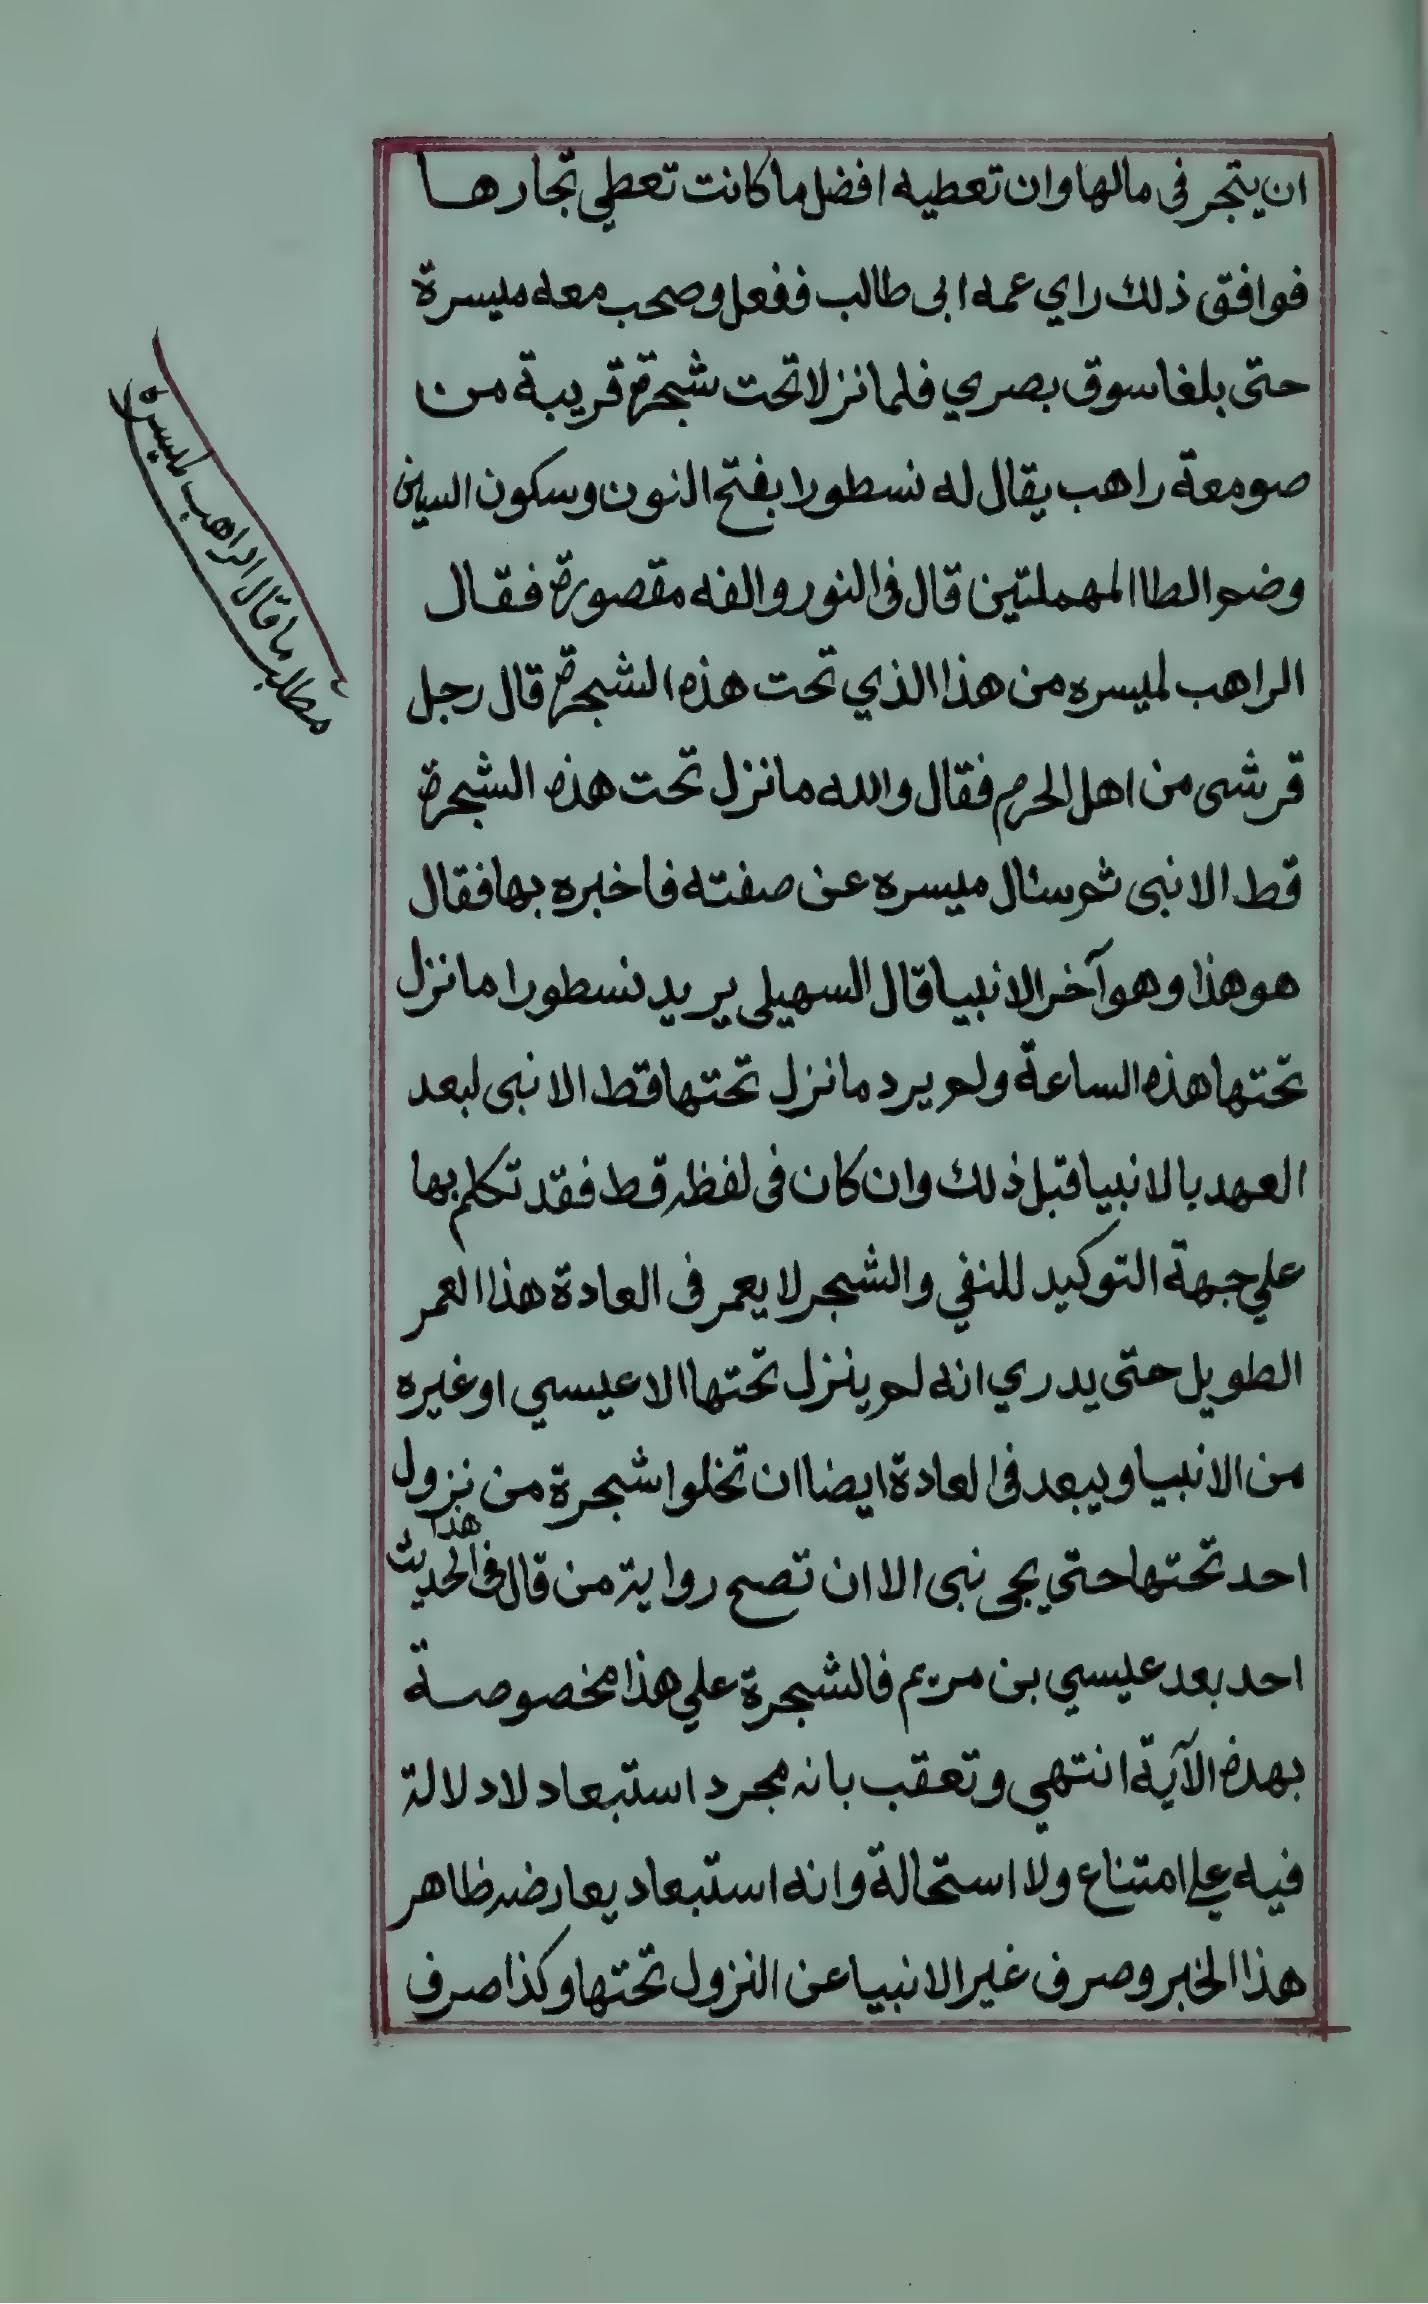 ان يتجر فى مالها وان تعطيه افضل ما كانت تعطي تجارها
فوافق ذلك راي عمه ابى طالب ففعل وصحب معه ميسرة
حتى بلغا سوق بصري فلما نزلا تحت شجرة قريبة من
صومعة راهب يقال له نسطورا بفتح النون وسكون السين
وضم الطا المهملتين قال فى النور والفه مقصورة فقال
الراهب لميسره من هذا الذي تحت هذه الشجرة قال رجل
قرشى من اهل الحرم فقال والله ما نزل تحت هذه الشجرة
قط الا نبى ثم سئال ميسره عن صفته فاخبره بها فقال
هو هذا وهو آخر الانبيا قال السهيلى يريد نسطورا ما نزل
تحتها هذه الساعة ولم يرد ما نزل تحتها قط الا نبى لبعد
العهد بالانبيا قبل ذلك وان كان فى لفظه قط فقد تكلم بها
علي جهة التوكيد للنفي والشجر لا يعمر فى العادة هذا العمر
الطويل حتى يدري انه لم ينزل تحتها الا عيسي او غيره
من الانبيا ويبعد فى العادة ايضا ان تخلوا شجرة من نزول
احد تحتها حتي يجى نبى الا ان تصح رواية من قال فى هذا الحديث
احد بعد عيسي بن مريم فالشجرة علي هذا مخصوصة
بهذه الآية انتهي وتعقب بانه مجرد استبعاد لا دلالة
فيه على امتناع ولا استحالة وانه استبعاد يعارضه ظاهر
هذا الخبر وصرف غير الانبيا عن النزول تحتها وكذا صرف
مطلب ما قال الراهب لميسره